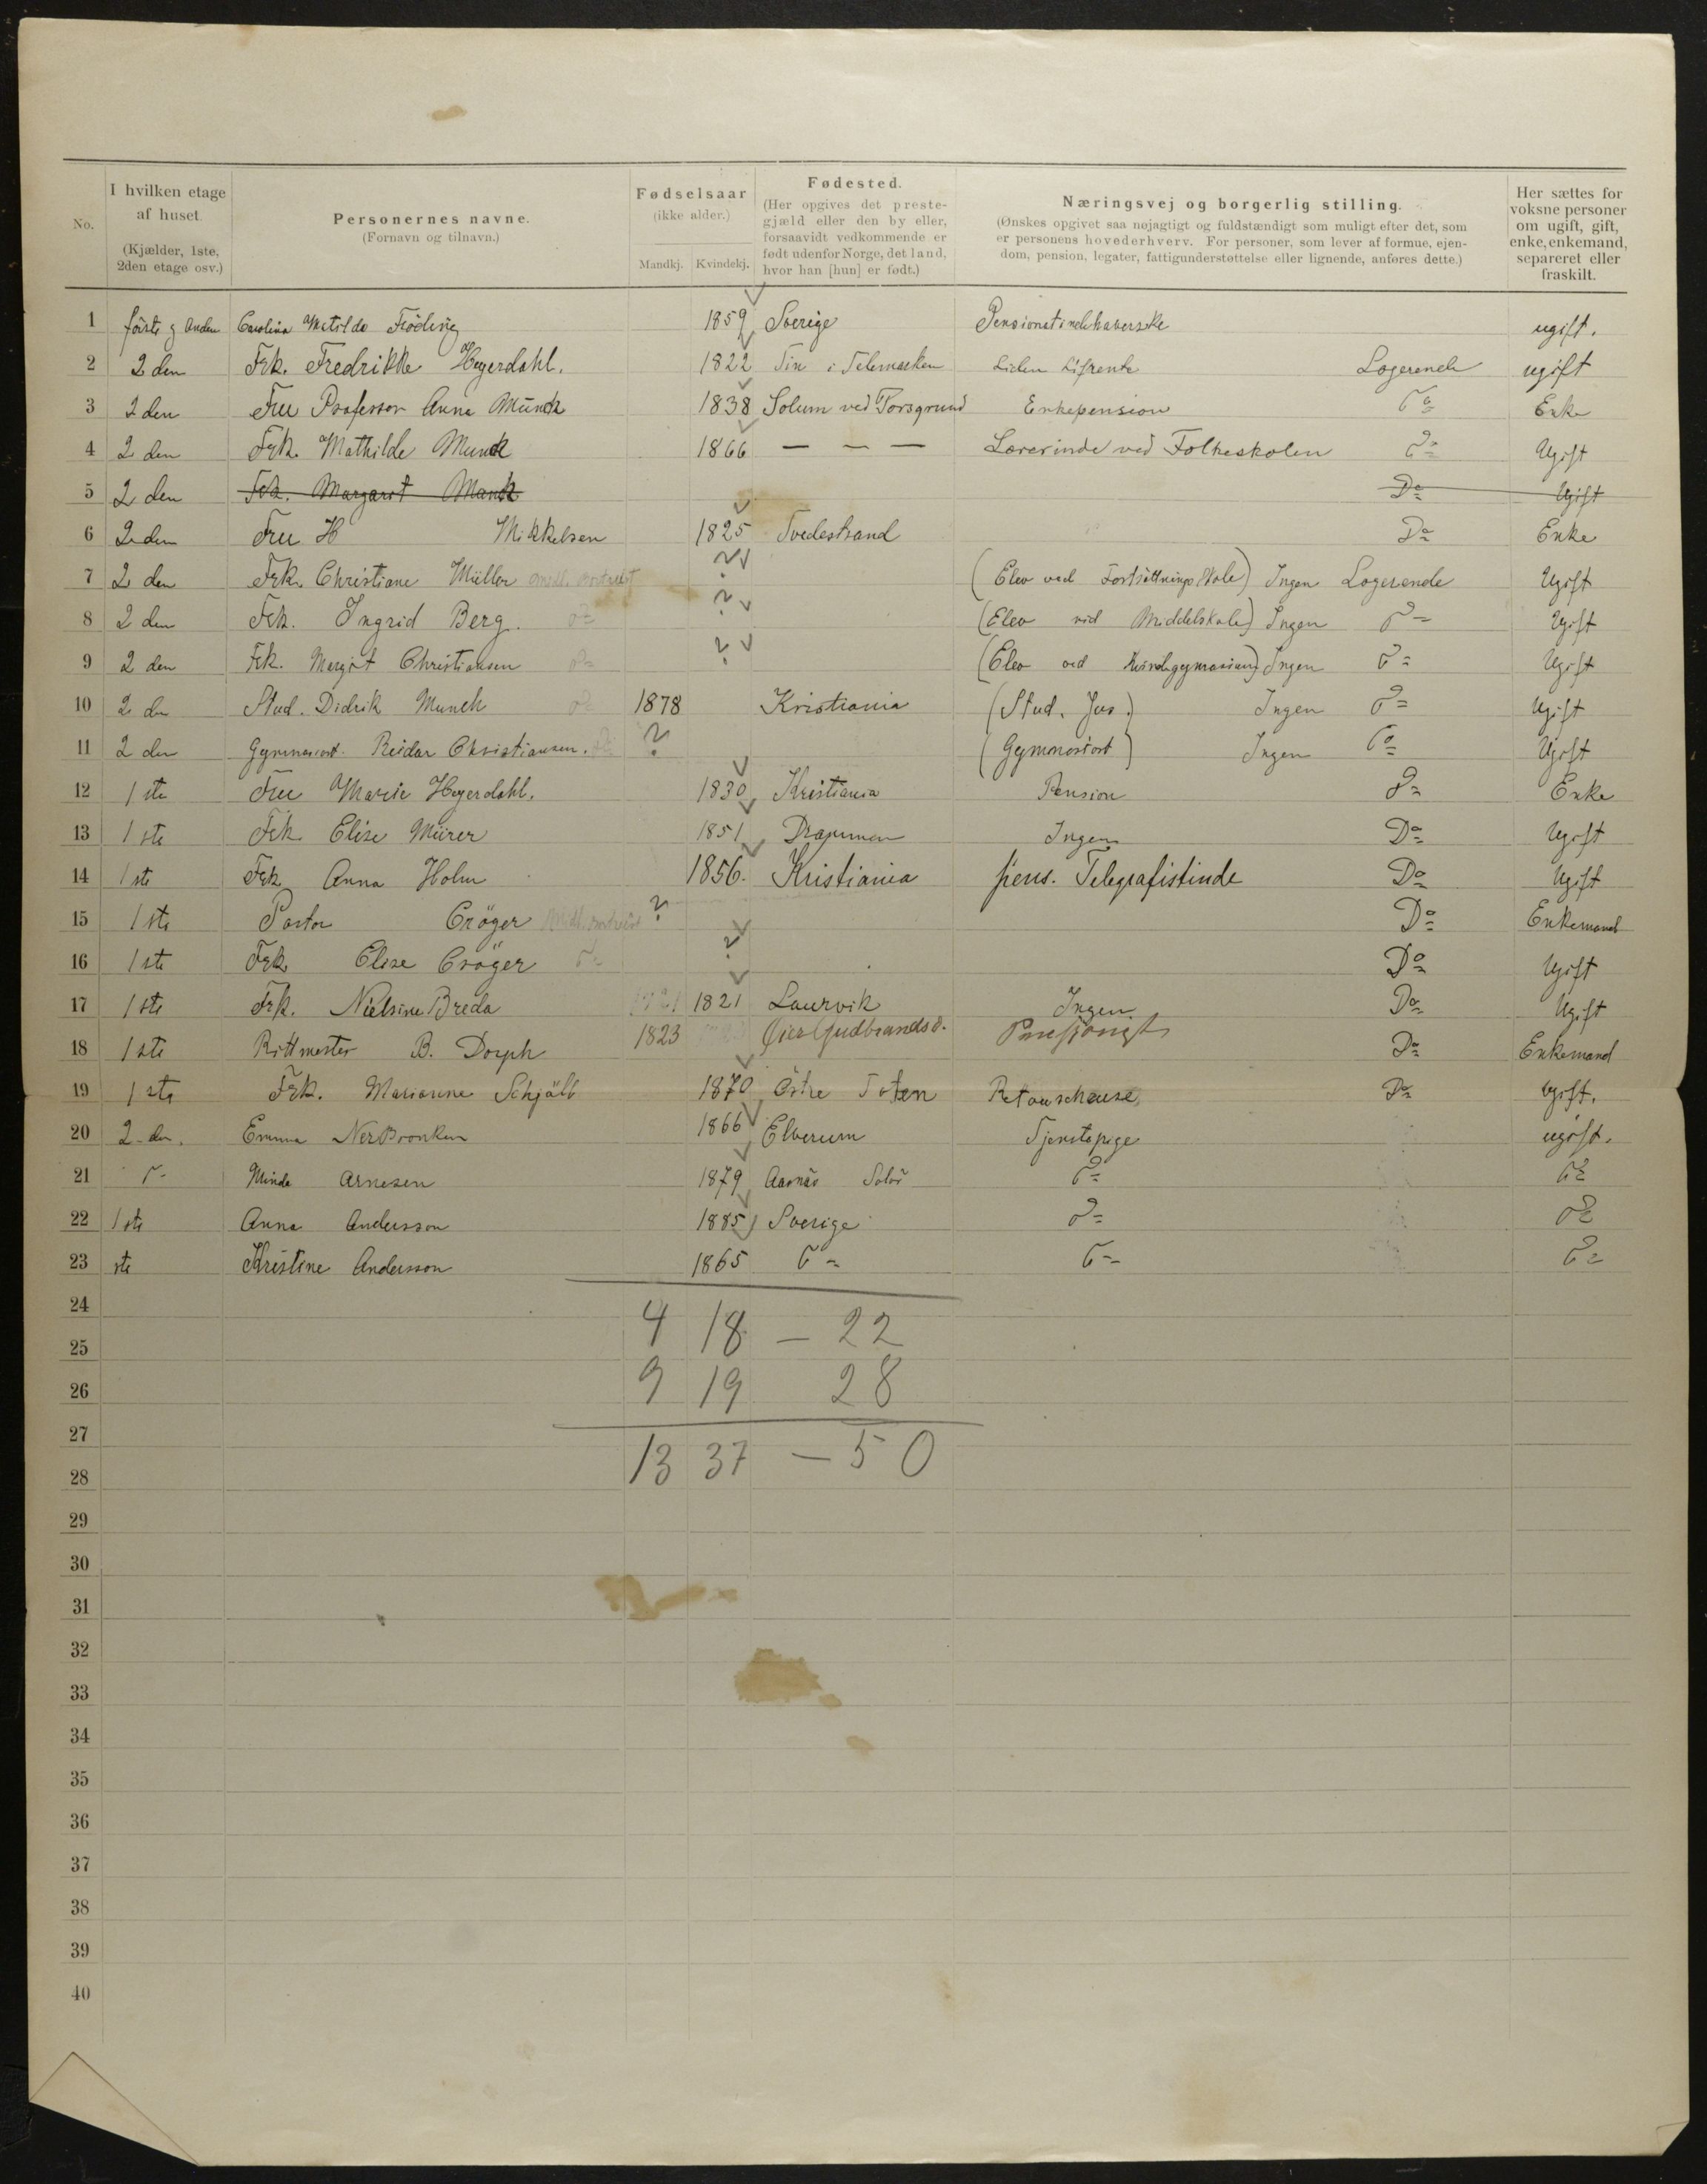 No.
I hvilken etage af huset.
(Kjælder, 1ste, 2den etage osv.)
Personernes navne.
(Fornavn og tilnavn.)
Fødselsaar
(ikke alder.)
Mandkj. Kvindekj.
Fødested.
(Her opgives det preste-
gjæld eller den by eller,
forsaavidt vedkommende er
født udenfor Norge, det land,
hvor han [hun] er født.)
Næringsvej og borgerlig stilling.
(Ønskes opgivet saa nøjagtigt og fuldstændigt som muligt efter det, som
er personens hovederhverv. For personer, som lever af formue, ejen-
dom, pension, legater, fattigunderstøttelse eller lignende, anføres dette.)
Her sættes for
voksne personer
om ugift, gift,
enke, enkemand,
separeret eller
fraskilt.
1 förste g anden Carolina Matilda Fröding 1859 Sverige Pensionatindehaverske ugift.
2 2 den Frk. Fredrikke Heyerdahl. 1822 Tin i Telemarken Liden Lifrente Logerende ugift
3 2 den Fru Professor Anna Munch 1838 Solum ved Porsgrund Enkepension Do Enke
4 2 den Frk. Mathilde Munch 1866 — — — Lærerinde ved Folkeskolen Do Ugift
5 2 den Frk. Margaret Munch Do Ugift
6 2 den Fru H Mikkelsen 1825 Tvedestrand Do Enke
7 2 den Frk. Christiane Müller midl. bortreist ? (Elev ved Fortsættnings skole) Ingen Logerende Ugift
8 2 den Frk. Ingrid Berg. do ? (Elev vid Middelskole) Ingen do Ugift
9 2 den Frk. Margit Christiansen do ? (Elev ved Kvindegymnasium) Ingen do Ugift
10 2 den Stud. Didrik Munch do 1878 Kristiania (Stud. Jus.) Ingen do Ugift
11 2 den Gymnasiast. Reidar Christiansen. do ? (Gymnasiast) Ingen do Ugift
12 1 ste Fru Marie Heyerdahl. 1830 Kristiania Pension do Enke
13 1 ste Frk Elise Mürer 1851 Drammen Ingen Do Ugift
14 1 ste Frk Anna Holm 1856. Kristiania pens. Telegrafistinde Do Ugift
15 1 ste Pastor Cröger midl. bortreist ? Do Enkemand
16 1 ste Frk Elise Cröger do ? Do Ugift
17 1 ste Frk. Nielsine Breda 1821 1821 Laurvik Ingen Do Ugift
18 1 ste Rittmester B. Dorph 1823 Øier Gudbrandsd. Pensjonist Do Enkemand
19 1 ste Frk. Marianne Schjöll 1870 Östre Toten Retouscheuse Do ugift.
20 2 den. Emma 1866 Elverum Tjenstepige ugift.
21 do Minda Arnesen 1879 Aasnäs Solör do do
22 1 ste Anna Andersson 1885 Sverige do do
23 ste Kristine Andersson 1865 do do do
24
4 18 — 22
25
26 9 19 28
27
28 13 37 — 50
29
30
31
32
33
34
35
36
37
38
39
40